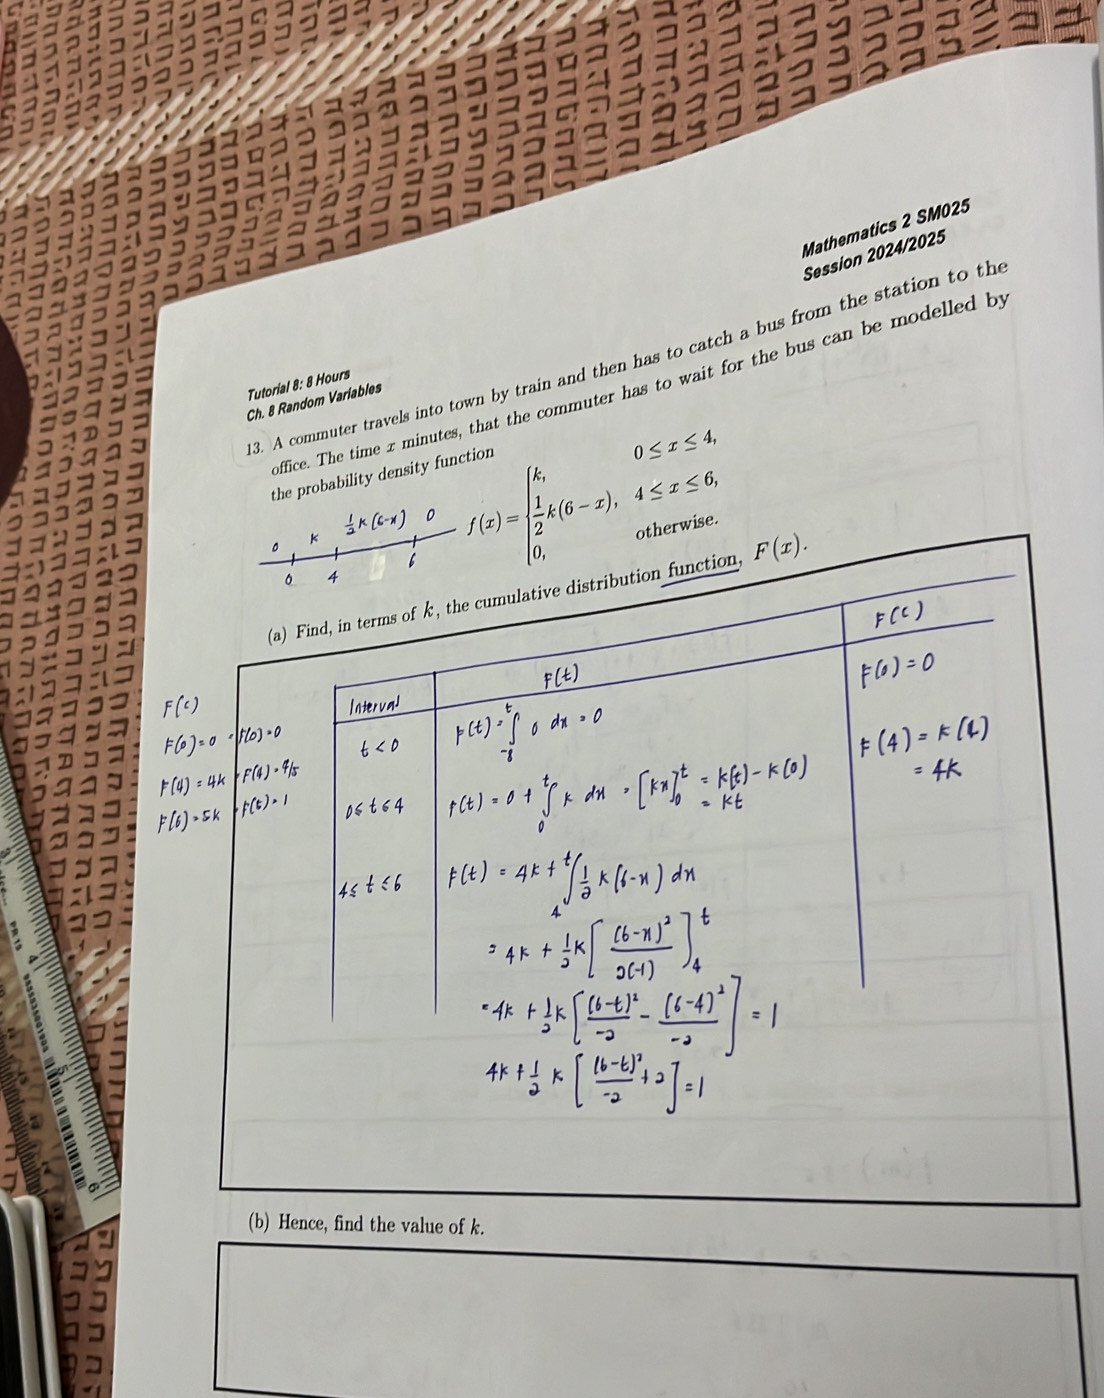 Mathematics 2 SM025
Session 2024/2025
Tutorial 8: 8 Hours
Ch. 8 Random Variables
13. A commuter travels into town by train and then has to catch a bus from the station to the
office. The time x minutes, that the commuter has to wait for the bus can be modelled by
the probability density function
f(x) = { k, 0 ≤ x ≤ 4,
1/2 k(6 − x), 4 ≤ x ≤ 6,
0, otherwise.
0 k 1/2 k(6-x) 0
0 4 6
(a) Find, in terms of k, the cumulative distribution function, F(x).
F(c)
F(0)=0 F(0)=0
F(4) = 4k F(4) = 4/5
F(6) = 5k F(t) = 1
Interval F(t) F(c)
t < 0 F(t) = ∫ 0 dx = 0 F(0) = 0
0 ≤ t ≤ 4 F(t) = 0 + ∫_0^t k dx = [kx]_0^t = k(t) - k(0)
= kt
F(4) = k(4)
= 4k
4 ≤ t ≤ 6 F(t) = 4k + ∫_4^t 1/2 k(6-x) dx
= 4k + 1/2 k [ (6-x)² / 2(-1) ]_4^t
= 4k + 1/2 k [ (6-t)² / -2 - (6-4)² / -2 ] = 1
4k + 1/2 k [ (6-t)² / -2 + 2 ] = 1
(b) Hence, find the value of k.